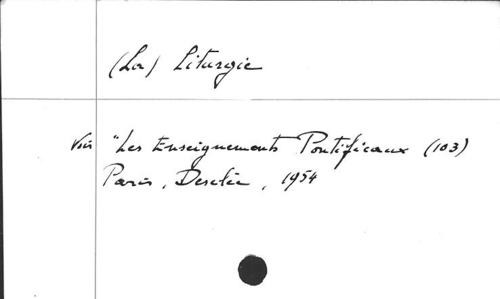 (La) Liturgie
Voir "Les Enseignements Pontificaux (103)
Paris, Desclée, 1954